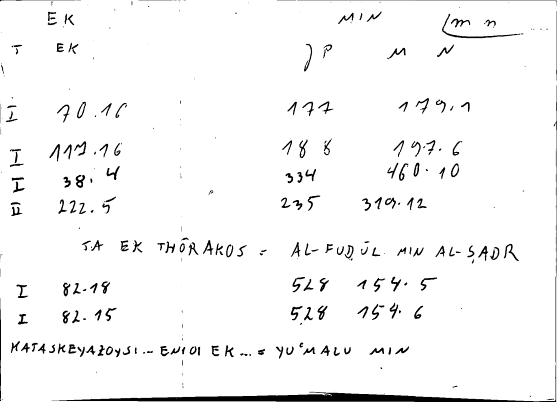 EK MIN mn
T EK JP M N
I 70.16 177 179.1
I 117.16 188 197.6
I 38.4 334 460.10
II 222.5 235 319.12
TA EK THŌRAKOS = AL-FUḌŪL MIN AL-ṢADR
I 82.18 528 154.5
I 82.15 528 154.6
KATASKEYAZOYSI... ENIOI EK... = YUʿMALU MIN